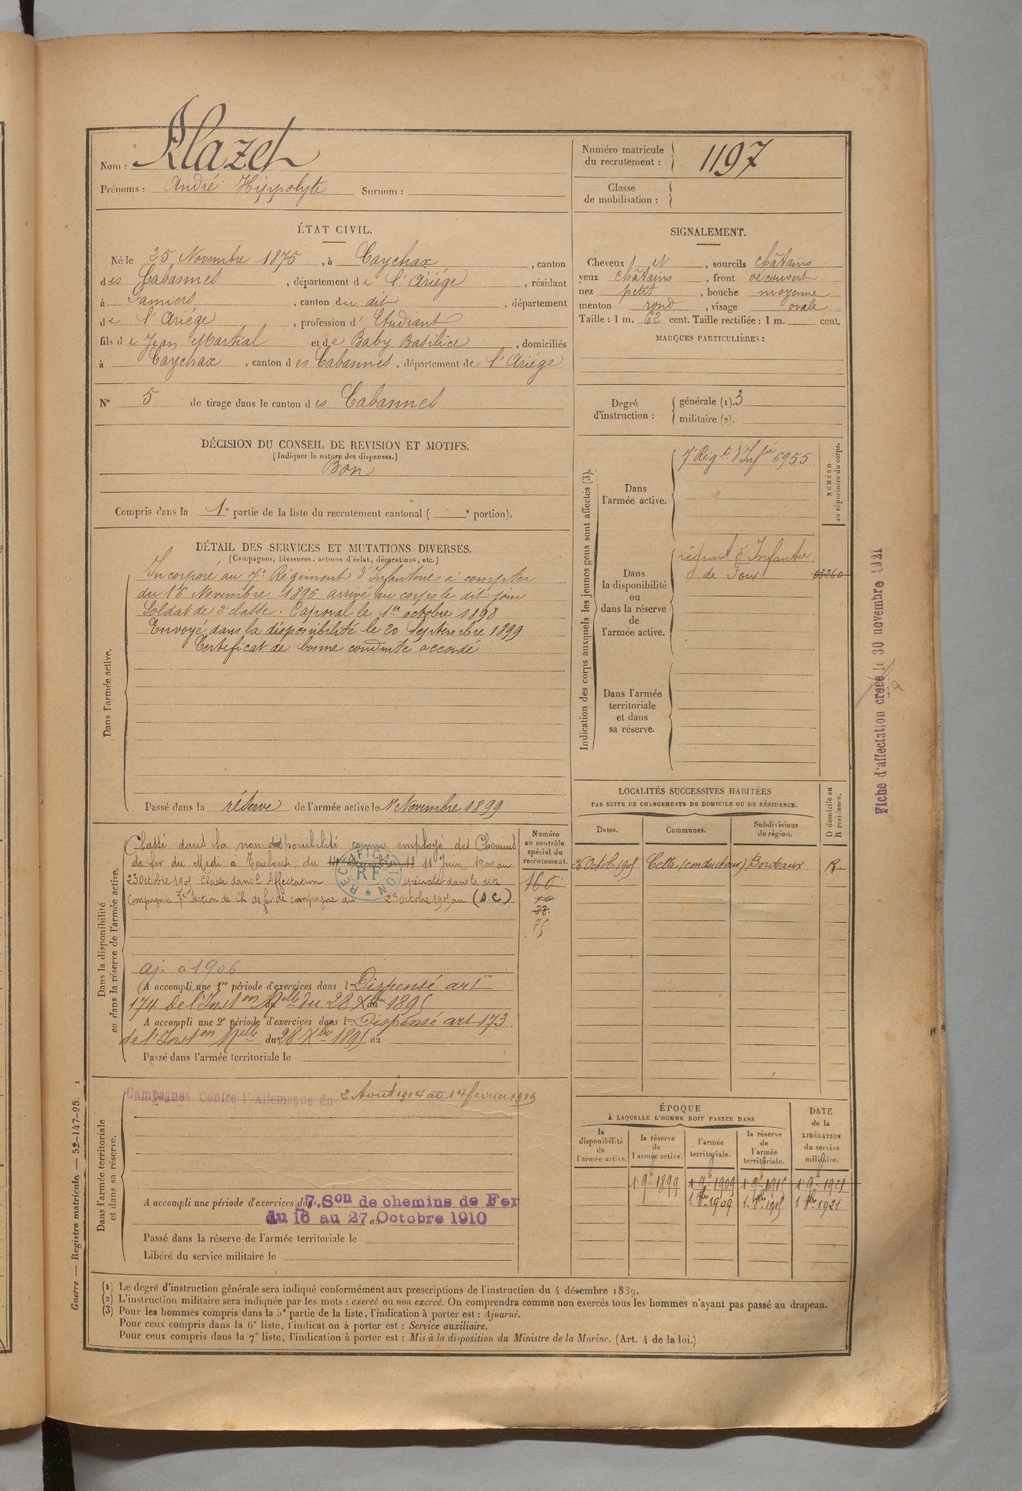 Nom : Alazet
Prénoms : André Hippolyte Surnom :
Numéro matricule du recrutement : 1197
Classe de mobilisation :
ÉTAT CIVIL.
Né le 25 Novembre 1875, à Caychax, canton
des Cabannes, département de l'Ariége, résidant
à Pamiers, canton du dit, département
de l'Ariége, profession d'Etudiant
fils de Jean Martial et de Baby Basilice, domiciliés
à Caychax, canton des Cabannes, département de l'Ariége
N° 5 de tirage dans le canton des Cabannes
SIGNALEMENT.
Cheveux et, sourcils châtains
yeux châtains, front découvert
nez petit, bouche moyenne
menton rond, visage ovale
Taille : 1 m. 62 cent. Taille rectifiée : 1 m. cent.
MARQUES PARTICULIÈRES :
Degré d'instruction : générale (1). 3
militaire (2).
DÉCISION DU CONSEIL DE REVISION ET MOTIFS.
(Indiquer la nature des dispenses.)
Bon
Compris dans la 1e partie de la liste du recrutement cantonal ( e portion).
DÉTAIL DES SERVICES ET MUTATIONS DIVERSES.
(Campagnes, blessures, actions d'éclat, décorations, etc.)
Dans l'armée active.
Incorporé au 7e Régiment d'Infanterie à compter
du 15 Novembre 1896 arrivé au corps le dit jour
Soldat de 2e classe. Caporal le 1er octobre 1898
Envoyé dans la disponibilité le 20 septembre 1899
Certificat de bonne conduite accordé
Passé dans la réserve de l'armée active le 1er Novembre 1899
Indication des corps auxquels les jeunes gens sont affectés (3).
NUMÉRO au répertoire du corps.
Dans l'armée active.
7e Régt d'Infie 6955
Dans la disponibilité ou dans la réserve de l'armée active.
régiment d'Infanterie
de Foix
Dans l'armée territoriale et dans sa réserve.
Fiche d'affectation créée le 30 novembre 1921
Dans la disponibilité ou dans la réserve de l'armée active.
Classé dans la non disponibilité comme employé des Chemins
de fer du Midi à Toulouse du 11 Juin 1900 au
23 Octobre 1905. Classé dans l'Affectation spéciale dans la dite
Compagnie 7e Section de Ch. de fer de campagne du 23 Octobre 1905 au (S.C)
RECTIFICATION
RF
Numéro au contrôle spécial du recrutement.
160
75
aj. à 1906
A accompli une 1re période d'exercices dans l Dispensé art
174 de l'Inston Melle du 28 Xbre 1895
A accompli une 2e période d'exercices dans l Dispensé art 173
de l'Inston Melle du 28 Xbre 1895 au
Passé dans l'armée territoriale le
LOCALITÉS SUCCESSIVES HABITÉES
PAR SUITE DE CHANGEMENTS DE DOMICILE OU DE RÉSIDENCE.
Dates. Communes. Subdivisions de région. D domicile ou R résidence.
Octob. 1905 Cette (conducteur) Bordeaux R
Dans l'armée territoriale et dans sa réserve.
Campagnes Contre l'Allemagne du 2 Août 1914 au 14 février 1919
A accompli une période d'exercices dans 7e Son de chemins de Fer
du 16 au 27 Octobre 1910
Passé dans la réserve de l'armée territoriale le
Libéré du service militaire le
ÉPOQUE
À LAQUELLE L'HOMME DOIT PASSER DANS
DATE de la LIBÉRATION du service militaire.
la disponibilité de l'armée active. la réserve de l'armée active. l'armée territoriale. la réserve de l'armée territoriale.
1 9e 1899 1 9e 1909 1 9e 1915 1 9e 1921
1 8bre 1909 1 8bre 1915 1 8bre 1921
(1) Le degré d'instruction générale sera indiqué conformément aux prescriptions de l'instruction du 4 décembre 1889.
(2) L'instruction militaire sera indiquée par les mots : exercé ou non exercé. On comprendra comme non exercés tous les hommes n'ayant pas passé au drapeau.
(3) Pour les hommes compris dans la 5e partie de la liste, l'indication à porter est : Ajourné.
Pour ceux compris dans la 6e liste, l'indication à porter est : Service auxiliaire.
Pour ceux compris dans la 7e liste, l'indication à porter est : Mis à la disposition du Ministre de la Marine. (Art. 4 de la loi.)
Guerre — Registre matricule. — 52-147-95. 1